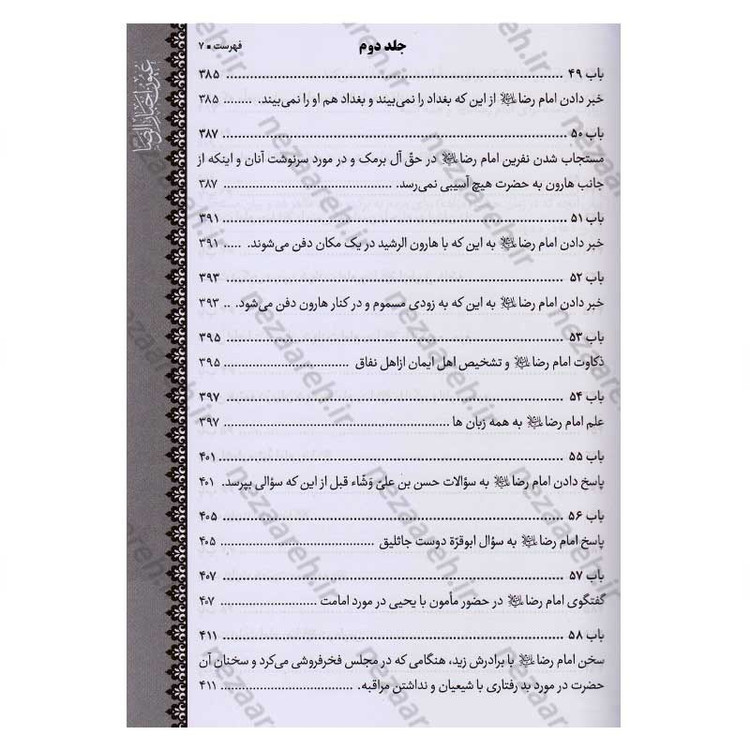 جلد دوم
فهرست ▪ ۷
عیون اخبار الرضا
باب ۴۹ ........ ۳۸۵
خبر دادن امام رضا علیه‌السلام از این که بغداد را نمی‌بیند و بغداد هم او را نمی‌بیند. ........ ۳۸۵
باب ۵۰ ........ ۳۸۷
مستجاب شدن نفرین امام رضا علیه‌السلام در حقّ آل برمک و در مورد سرنوشت آنان و اینکه از
جانب هارون به حضرت هیچ آسیبی نمی‌رسد. ........ ۳۸۷
باب ۵۱ ........ ۳۹۱
خبر دادن امام رضا علیه‌السلام به این که با هارون الرشید در یک مکان دفن می‌شوند. ..... ۳۹۱
باب ۵۲ ........ ۳۹۳
خبر دادن امام رضا علیه‌السلام به این که به زودی مسموم و در کنار هارون دفن می‌شود. .. ۳۹۳
باب ۵۳ ........ ۳۹۵
ذکاوت امام رضا علیه‌السلام و تشخیص اهل ایمان ازاهل نفاق ........ ۳۹۵
باب ۵۴ ........ ۳۹۷
علم امام رضا علیه‌السلام به همه زبان ها ........ ۳۹۷
باب ۵۵ ........ ۴۰۱
پاسخ دادن امام رضا علیه‌السلام به سؤالات حسن بن علیّ وَشّاء قبل از این که سؤالی بپرسد. ۴۰۱
باب ۵۶ ........ ۴۰۵
پاسخ امام رضا علیه‌السلام به سؤال ابوقرّة دوست جاثلیق ........ ۴۰۵
باب ۵۷ ........ ۴۰۷
گفتگوی امام رضا علیه‌السلام در حضور مأمون با یحیی در مورد امامت ........ ۴۰۷
باب ۵۸ ........ ۴۱۱
سخن امام رضا علیه‌السلام با برادرش زید، هنگامی که در مجلس فخرفروشی می‌کرد و سخنان آن
حضرت در مورد بد رفتاری با شیعیان و نداشتن مراقبه. ........ ۴۱۱
nezaareh.ir